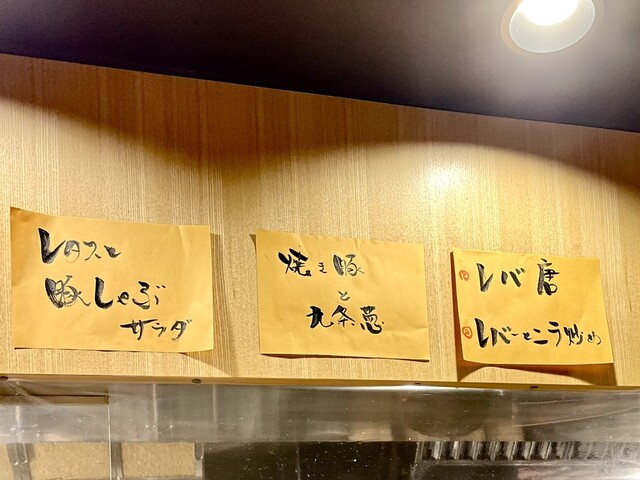 レタスと
豚しゃぶ
サラダ
焼き豚
と
九条葱
レバ唐
レバーとニラ炒め